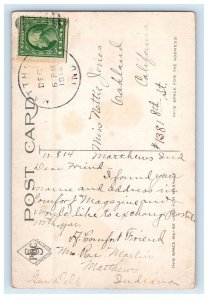 POST CARD
THIS SPACE FOR THE ADDRESS
THIS SPACE MAY BE USED FOR
DEC
5 PM
IND
Miss Nettie Jones
Oakland
California
#1381 8th St.
12 8 14 Matthews Ind
Dear Friend.
I found your
name and address in
Comfort Magazine and
would like to exchange Postals
with you
A Comfort Friend
Mrs Rae Martin
Matthews
Indiana